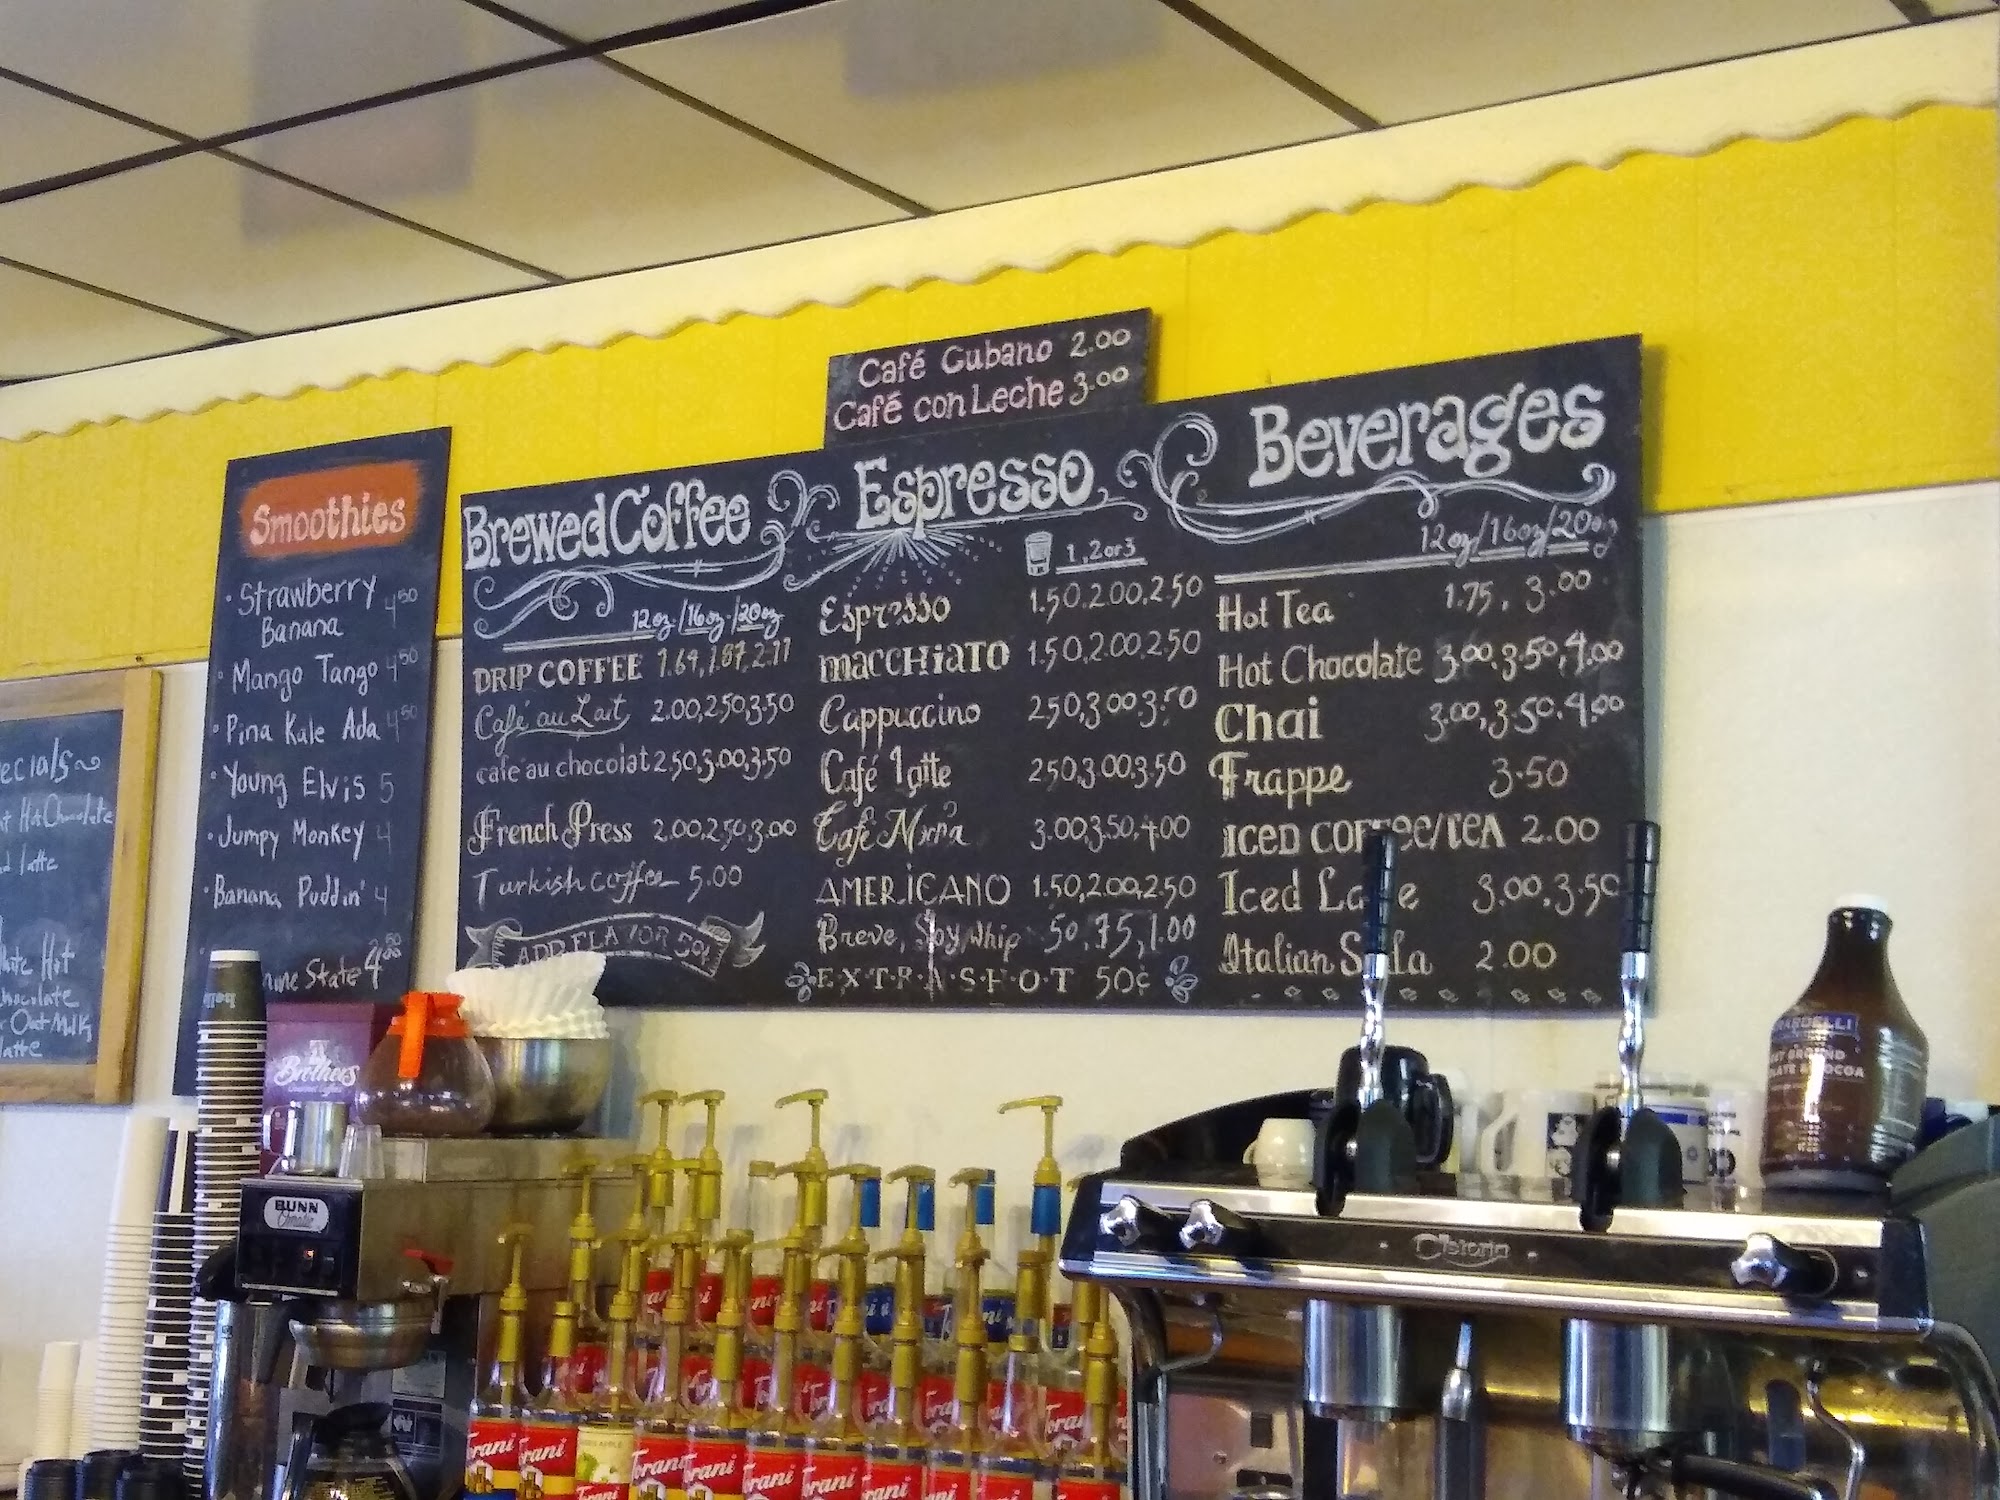 Café Cubano 2.00
Café con Leche 3.00
Smoothies
• Strawberry Banana 4.50
• Mango Tango 4.50
• Pina Kale Ada 4.50
• Young Elvis 5
• Jumpy Monkey 4
• Banana Puddin' 4
State 4.50
Hot Chocolate
latte
Hot
latte
Brewed Coffee
12oz/16oz/20oz
DRIP COFFEE 1.64, 1.87, 2.11
Café au Lait 2.00, 2.50, 3.50
café au chocolat 2.50, 3.00, 3.50
French Press 2.00, 2.50, 3.00
Turkish coffee 5.00
ADD FLAVOR 50¢
Espresso
1, 2 or 3
Espresso 1.50, 2.00, 2.50
macchiato 1.50, 2.00, 2.50
Cappuccino 2.50, 3.00, 3.50
Café Latte 2.50, 3.00, 3.50
Café Mocha 3.00, 3.50, 4.00
AMERICANO 1.50, 2.00, 2.50
Breve, Soy, Whip 50, 75, 1.00
E·X·T·R·A·S·H·O·T 50¢
Beverages
12oz/16oz/20oz
Hot Tea 1.75, 3.00
Hot Chocolate 3.00, 3.50, 4.00
Chai 3.00, 3.50, 4.00
Frappe 3.50
ICED COFFEE/TEA 2.00
Iced Latte 3.00, 3.50
Italian Soda 2.00
Brothers
BUNN
Omatic
Astoria
Torani
Torani
Torani
Torani
Torani
Torani
Torani